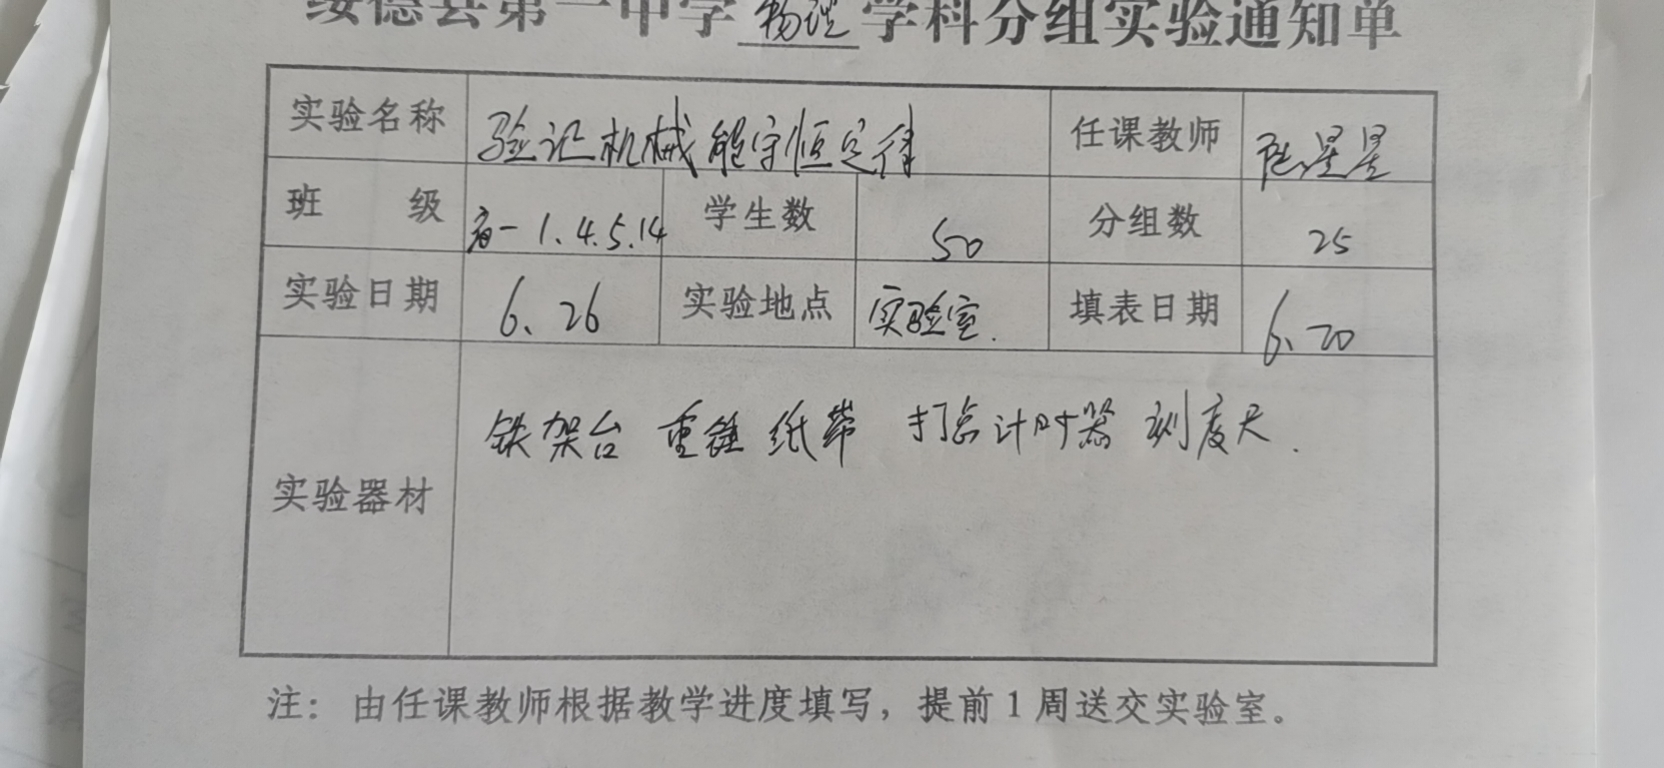 绥德县第一中学物理学科分组实验通知单
实验名称 验证机械能守恒定律 任课教师 星星
班 级 高一 1.4.5.14 学生数 50 分组数 25
实验日期 6、26 实验地点 实验室. 填表日期 6、20
实验器材 铁架台 重锤 纸带 打点计时器 刻度尺.
注：由任课教师根据教学进度填写，提前1周送交实验室。